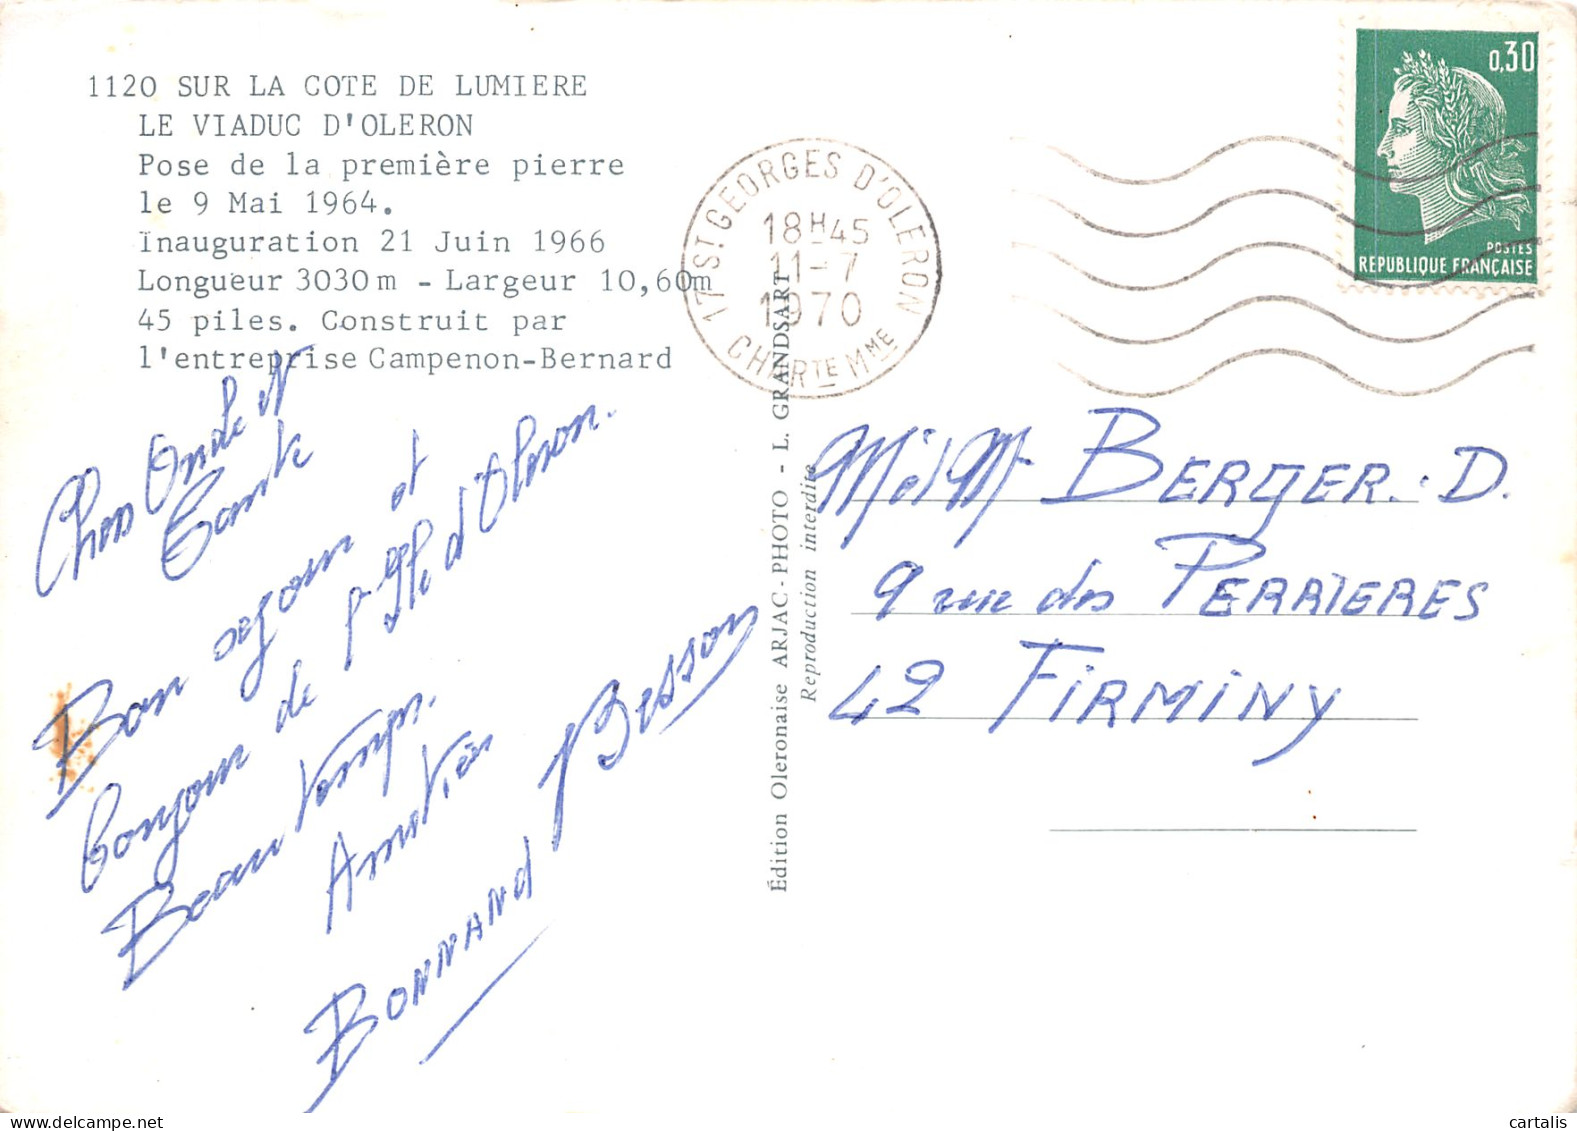 1120 SUR LA COTE DE LUMIERE
LE VIADUC D'OLERON
Pose de la première pierre
le 9 Mai 1964.
Inauguration 21 Juin 1966
Longueur 3030 m - Largeur 10,60m
45 piles. Construit par
l'entreprise Campenon-Bernard
Chers Oncle et
Tante
Bon séjour et
bonjour de l'Ile d'Oléron.
Beau temps.
Amitiés
BONNAND Besson
Édition Oleronaise ARJAC-PHOTO - L. GRANDSART
Reproduction interdite
17 ST GEORGES D'OLERON
18H45
11-7
1970
CHARTE MME
0,30
POSTES
REPUBLIQUE FRANÇAISE
M et Me BERGER. D.
9 rue des PERRIERES
42 FIRMINY
www.delcampe.net
cartalis